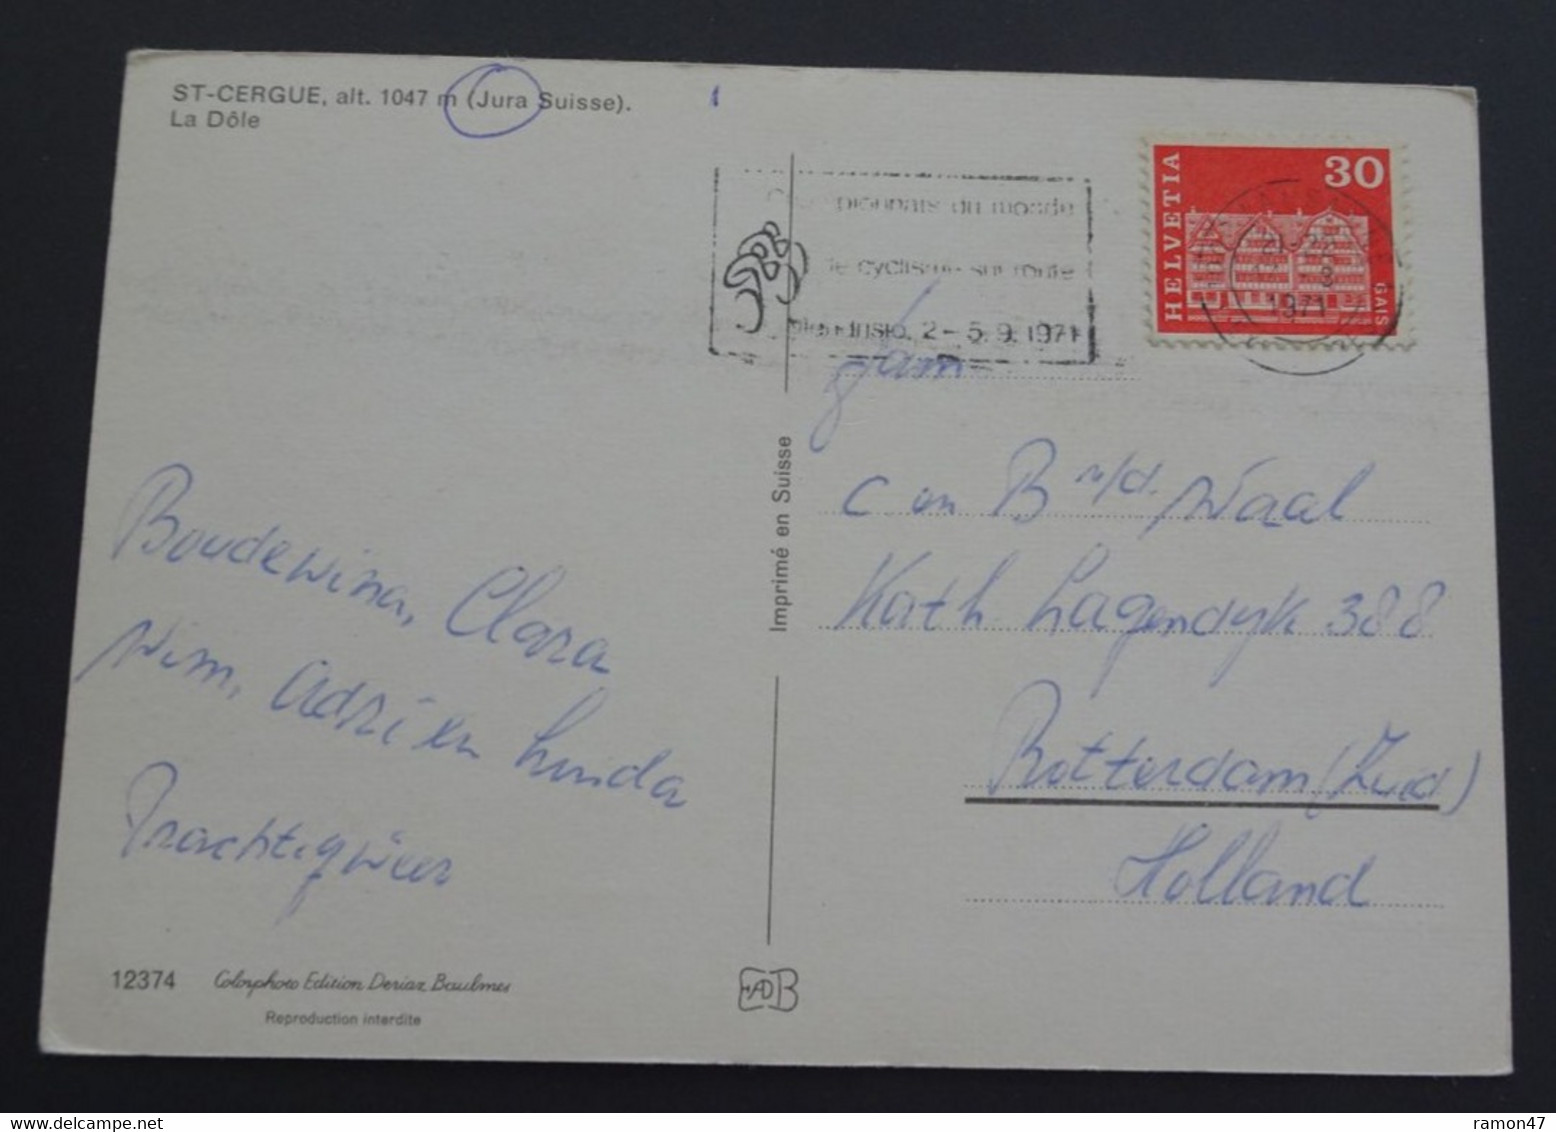 ST-CERGUE, alt. 1047 m (Jura Suisse).
La Dôle
pionnats du monde
cyclisme sur route
Mendrisio, 2-5.9.1971
HELVETIA
30
GAIS
21-22
1971
fam
C en B v/d. Waal
Kath Lagendyk 388
Rotterdam (Zuid)
Holland
Boudewina, Clara
Wim, Adri en Linda
Prachtig weer
Imprimé en Suisse
12374 Colorphoto Edition Deriaz Baulmes
Reproduction interdite
EADB
ramon47